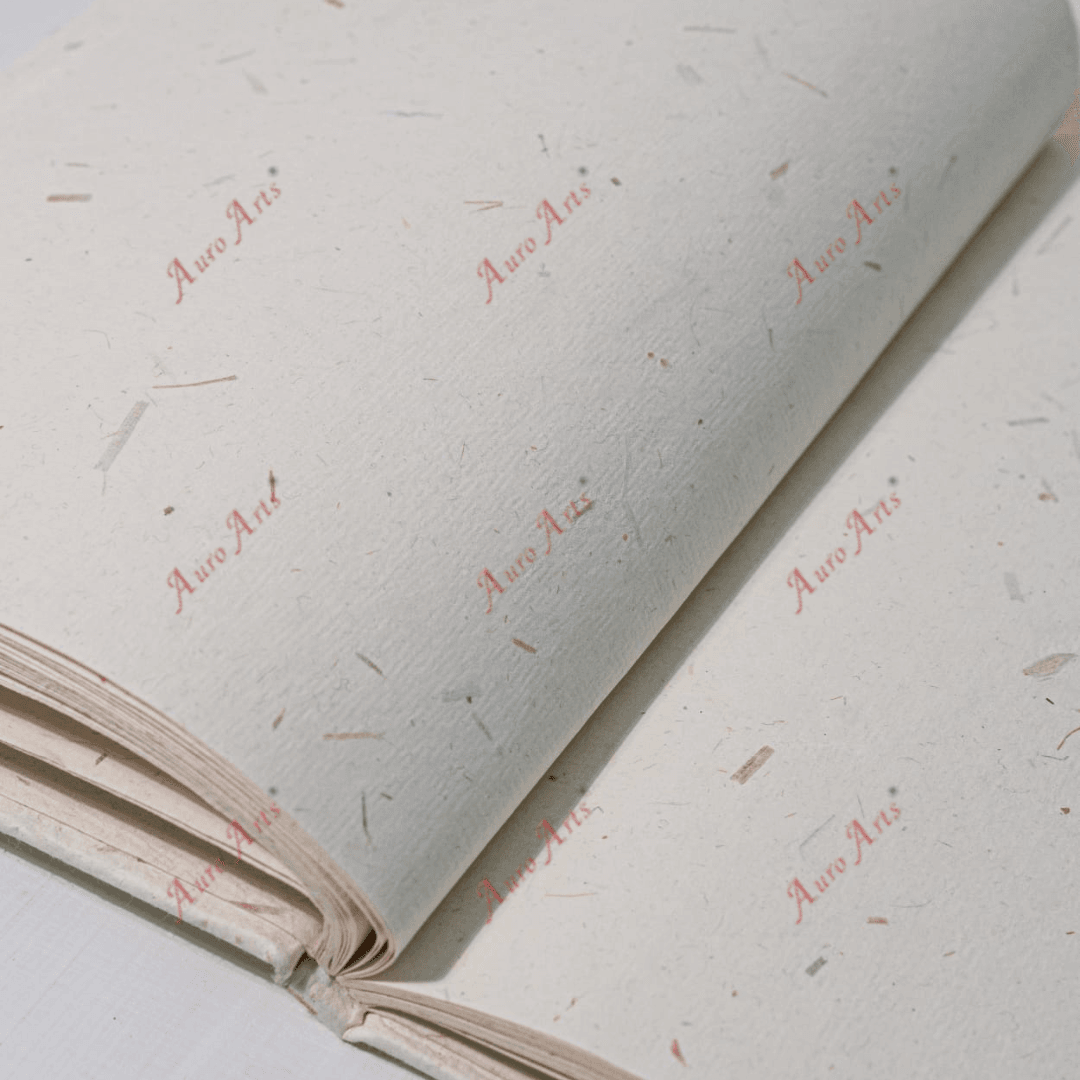 Auro Arts
Auro Arts
Auro Arts
Auro Arts
Auro Arts
Auro Arts
Auro Arts
Auro Arts
Auro Arts